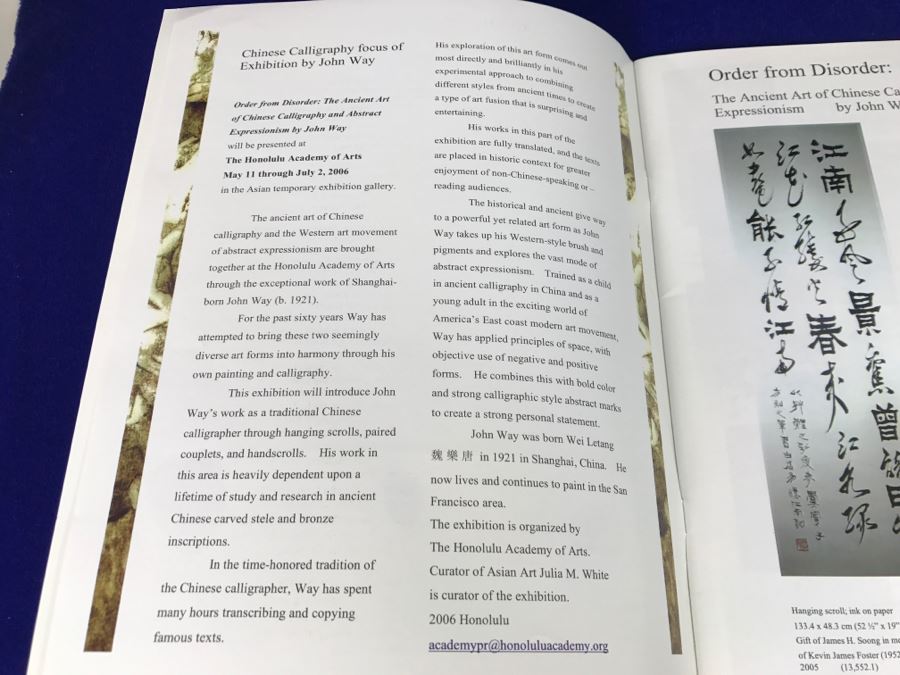 Chinese Calligraphy focus of
Exhibition by John Way
Order from Disorder: The Ancient Art
of Chinese Calligraphy and Abstract
Expressionism by John Way
will be presented at
The Honolulu Academy of Arts
May 11 through July 2, 2006
in the Asian temporary exhibition gallery.
The ancient art of Chinese
calligraphy and the Western art movement
of abstract expressionism are brought
together at the Honolulu Academy of Arts
through the exceptional work of Shanghai-
born John Way (b. 1921).
For the past sixty years Way has
attempted to bring these two seemingly
diverse art forms into harmony through his
own painting and calligraphy.
This exhibition will introduce John
Way's work as a traditional Chinese
calligrapher through hanging scrolls, paired
couplets, and handscrolls. His work in
this area is heavily dependent upon a
lifetime of study and research in ancient
Chinese carved stele and bronze
inscriptions.
In the time-honored tradition of
the Chinese calligrapher, Way has spent
many hours transcribing and copying
famous texts.
His exploration of this art form comes out
most directly and brilliantly in his
experimental approach to combining
different styles from ancient times to create
a type of art fusion that is surprising and
entertaining.
His works in this part of the
exhibition are fully translated, and the texts
are placed in historic context for greater
enjoyment of non-Chinese-speaking or –
reading audiences.
The historical and ancient give way
to a powerful yet related art form as John
Way takes up his Western-style brush and
pigments and explores the vast mode of
abstract expressionism. Trained as a child
in ancient calligraphy in China and as a
young adult in the exciting world of
America's East coast modern art movement,
Way has applied principles of space, with
objective use of negative and positive
forms. He combines this with bold color
and strong calligraphic style abstract marks
to create a strong personal statement.
John Way was born Wei Letang
魏樂唐 in 1921 in Shanghai, China. He
now lives and continues to paint in the San
Francisco area.
The exhibition is organized by
The Honolulu Academy of Arts.
Curator of Asian Art Julia M. White
is curator of the exhibition.
2006 Honolulu
academypr@honoluluacademy.org
Order from Disorder:
The Ancient Art of Chinese Ca
Expressionism by John W
江南
風景
舊曾
春來江
能不憶江南
Hanging scroll; ink on paper
133.4 x 48.3 cm (52 ½" x 19"
Gift of James H. Soong in me
of Kevin James Foster (1952
2005 (13,552.1)